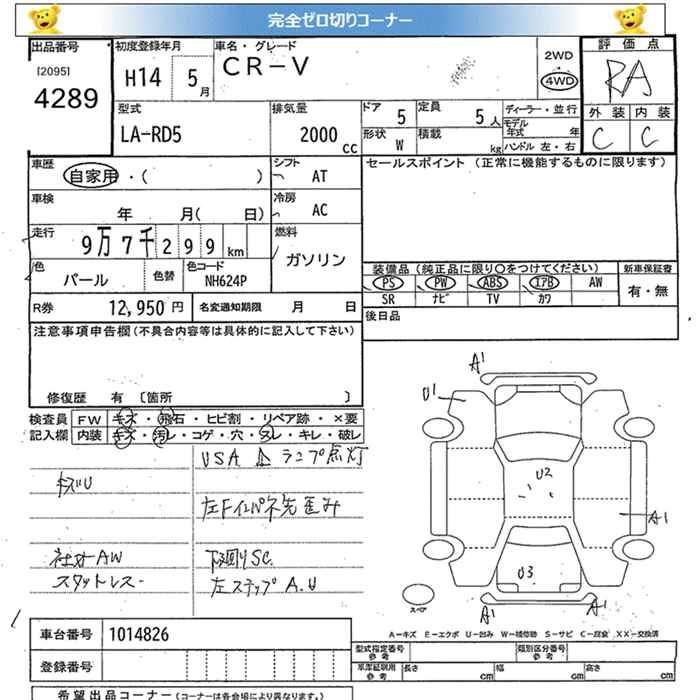 完全ゼロ切りコーナー
出品番号 初度登録年月 車名・グレード 2WD 評価点
[2095] H14 5月 CR-V 4WD RA
4289
外装 内装
C C
型式 排気量 ドア 5 定員 5人 ディーラー・並行
LA-RD5 2000cc 形状 W 積載 kg モデル年式 年
ハンドル 左・右
車歴 シフト セールスポイント (正常に機能するものに限ります)
自家用・( ) AT
車検 冷房
年 月( 日) AC
走行 燃料
9万7千299km ガソリン
色 色替 色コード 装備品 (純正品に限り○をつけてください) 新車保証書
パール NH624P PS PW ABS エアB AW 有・無
SR ナビ TV カワ
R券 12,950円 名変通知期限 月 日 後日品
注意事項申告欄(不具合内容等は具体的に記入して下さい)
修復歴 有 〔箇所 〕
検査員 FW キズ・飛石・ヒビ割・リペア跡・×要
記入欄 内装 キズ・汚レ・コゲ・穴・スレ・キレ・破レ
USA ランプ点灯
キズU
左Fインパネ先歪み
社外AW 下廻りSC
スタットレス 左ステップA.U
A1
U1
U2
A1
U3
A1 A1
スペア
A-キズ E-エクボ U-凹み W-補修跡 S-サビ C-腐食 XX-交換済
車台番号 1014826
登録番号
型式指定番号 参考 類別区分番号 参考
参考 長さ cm 幅 cm 高さ cm
希望出品コーナー (コーナーは各会場により異なります。)